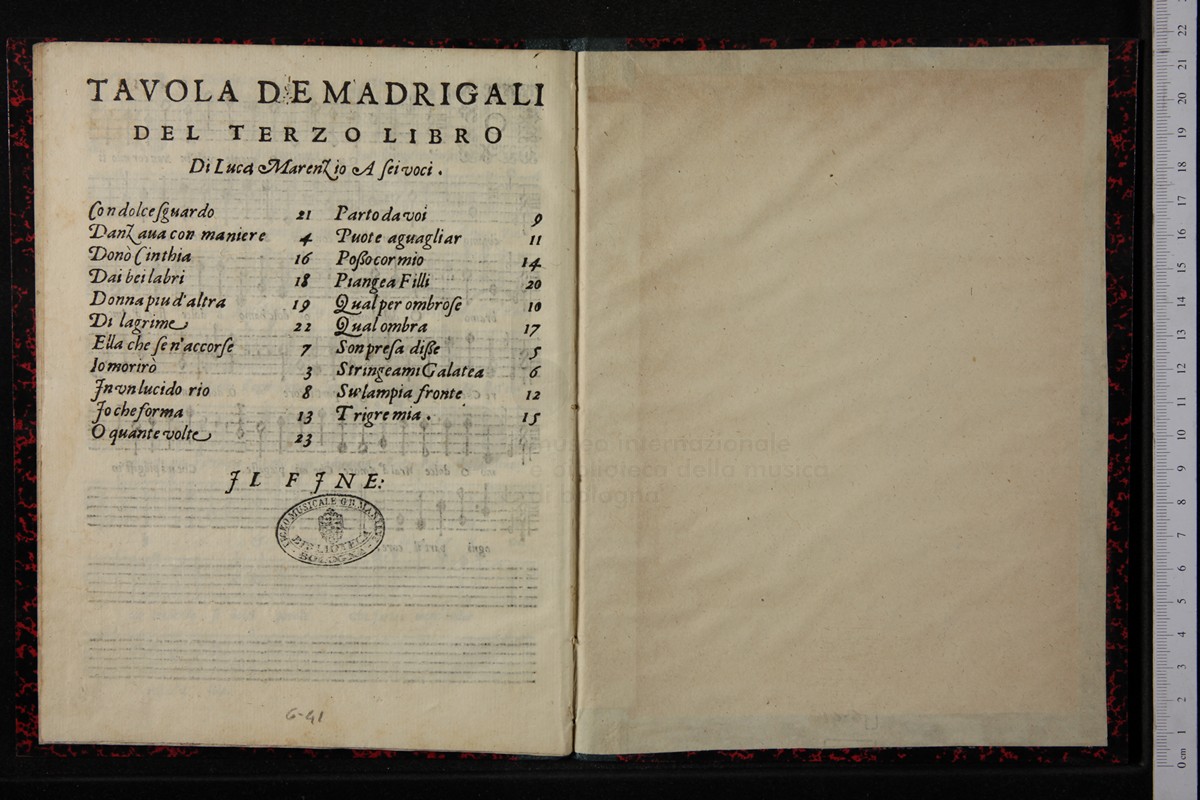 TAVOLA DE MADRIGALI
DEL TERZO LIBRO
Di Luca Marenzio A sei voci .
Con dolce sguardo 21
Danzaua con maniere 4
Donò Cinthia 16
Dai bei labri 18
Donna piu d'altra 19
Di lagrime 22
Ella che se n'accorse 7
Io morirò 3
In vn lucido rio 8
Io che forma 13
O quante volte 23
Parto da voi 9
Puote aguagliar 11
Posso cor mio 14
Piangea Filli 20
Qual per ombrose 10
Qual ombra 17
Son presa disse 5
Stringeami Galatea 6
Su l'ampia fronte 12
Trigre mia . 15
IL FINE:
LICEO MUSICALE G.B. MARTINI
BIBLIOTECA
BOLOGNA
6-41
museo internazionale
e biblioteca della musica
di bologna
0 cm 1 2 3 4 5 6 7 8 9 10 11 12 13 14 15 16 17 18 19 20 21 22